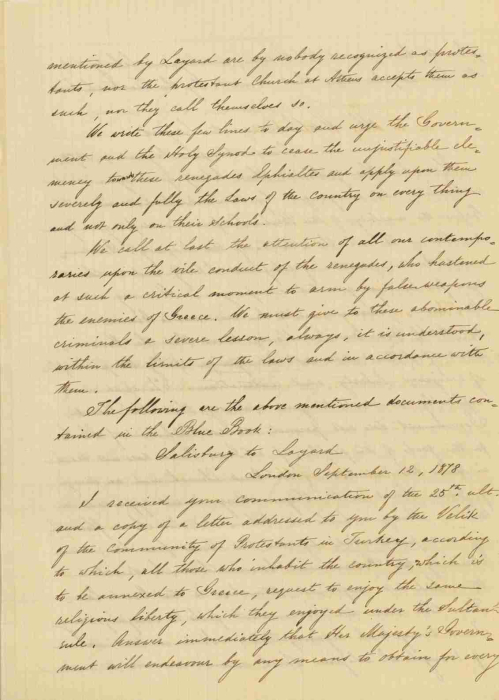 mentioned by Layard are by nobody recognized as protes-
tants, nor the protestant Church at Athens accepts them as
such, nor they call themselves so.
We wrote these few lines to day and urge the Govern-
ment and the Holy Synod to cease the unjustifiable cle-
mency towards these renegades Ephialtes and apply upon them
severely and fully the Laws of the country on every thing
and not only on their schools.
We call at last the attention of all our contempo-
raries upon the vile conduct of the renegades, who hastened
at such a critical moment to arm by false weapons
the enemies of Greece. We must give to these abominable
criminals a severe lesson, always, it is understood,
within the limits of the laws and in accordance with
them.
The following are the above mentioned documents con-
tained in the Blue Book:
Salisbury to Layard
London September 12, 1878
I received your communication of the 25th. ult-
and a copy of a letter addressed to you by the Vekil
of the Community of Protestants in Turkey, according
to which, all those who inhabit the country, which is
to be annexed to Greece, request to enjoy the same
religious liberty, which they enjoyed under the Sultan
rule. Answer immediately that Her Majesty's Govern-
ment will endeavour by any means to obtain for every